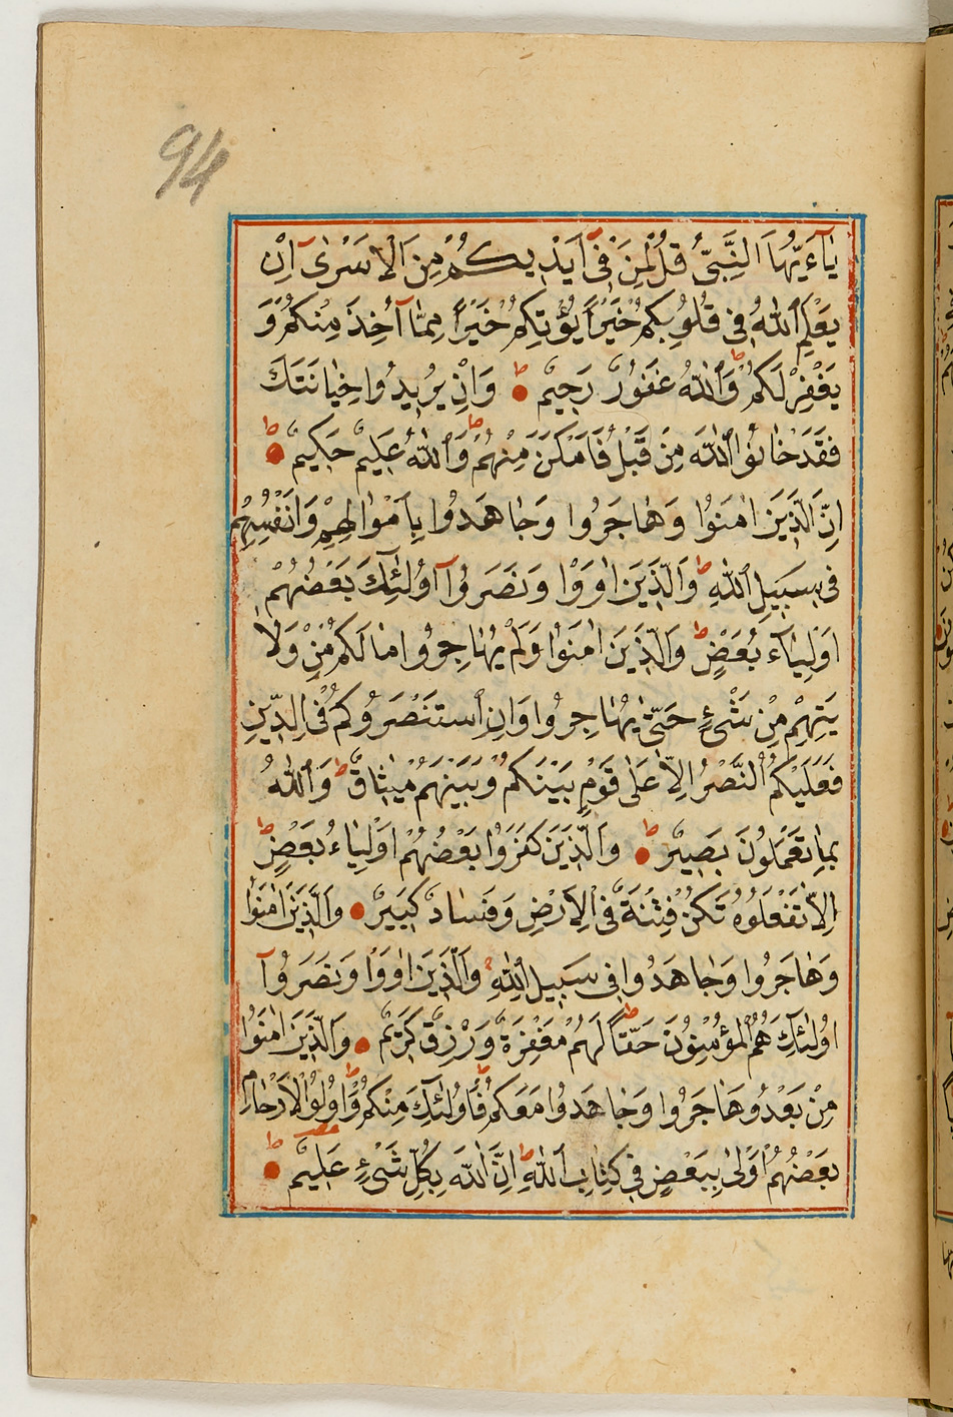 94
يٰٓاَيُّهَا النَّبِىُّ قُلْ لِمَنْ فِىٓ اَيْدٖيكُمْ مِنَ الْاَسْرٰىٓ اِنْ
يَعْلَمِ اللّٰهُ فٖى قُلُوبِكُمْ خَيْرًا يُؤْتِكُمْ خَيْرًا مِمَّٓا اُخِذَ مِنْكُمْ وَ
يَغْفِرْ لَكُمْ ط وَاللّٰهُ غَفُورٌ رَحٖيمٌ ط وَاِنْ يُرٖيدُوا خِيَانَتَكَ
فَقَدْ خَانُوا اللّٰهَ مِنْ قَبْلُ فَاَمْكَنَ مِنْهُمْ ط وَاللّٰهُ عَلٖيمٌ حَكٖيمٌ ط
اِنَّ الَّذٖينَ اٰمَنُوا وَهَاجَرُوا وَجَاهَدُوا بِاَمْوَالِهِمْ وَاَنْفُسِهِمْ
فٖى سَبٖيلِ اللّٰهِ ط وَالَّذٖينَ اٰوَوْا وَنَصَرُوٓا اُولٰٓئِكَ بَعْضُهُمْ
اَوْلِيَٓاءُ بَعْضٍ ط وَالَّذٖينَ اٰمَنُوا وَلَمْ يُهَاجِرُوا مَا لَكُمْ مِنْ وَلَا
يَتِهِمْ مِنْ شَىْءٍ حَتّٰى يُهَاجِرُوا وَاِنِ اسْتَنْصَرُوكُمْ فِى الدّٖينِ
فَعَلَيْكُمُ النَّصْرُ اِلَّا عَلٰى قَوْمٍ بَيْنَكُمْ وَبَيْنَهُمْ مٖيثَاقٌ ط وَاللّٰهُ
بِمَا تَعْمَلُونَ بَصٖيرٌ ط وَالَّذٖينَ كَفَرُوا بَعْضُهُمْ اَوْلِيَاءُ بَعْضٍ ط
اِلَّا تَفْعَلُوهُ تَكُنْ فِتْنَةٌ فِى الْاَرْضِ وَفَسَادٌ كَبٖيرٌ وَالَّذٖينَ اٰمَنُوا
وَهَاجَرُوا وَجَاهَدُوا فٖى سَبٖيلِ اللّٰهِ وَالَّذٖينَ اٰوَوْا وَنَصَرُوٓا
اُولٰٓئِكَ هُمُ الْمُؤْمِنُونَ حَقًّا ط لَهُمْ مَغْفِرَةٌ وَرِزْقٌ كَرٖيمٌ وَالَّذٖينَ اٰمَنُوا
مِنْ بَعْدُ وَهَاجَرُوا وَجَاهَدُوا مَعَكُمْ فَاُولٰٓئِكَ مِنْكُمْ ط وَاُولُوا الْاَرْحَامِ
بَعْضُهُمْ اَوْلٰى بِبَعْضٍ فٖى كِتَابِ اللّٰهِ ط اِنَّ اللّٰهَ بِكُلِّ شَىْءٍ عَلٖيمٌ ط